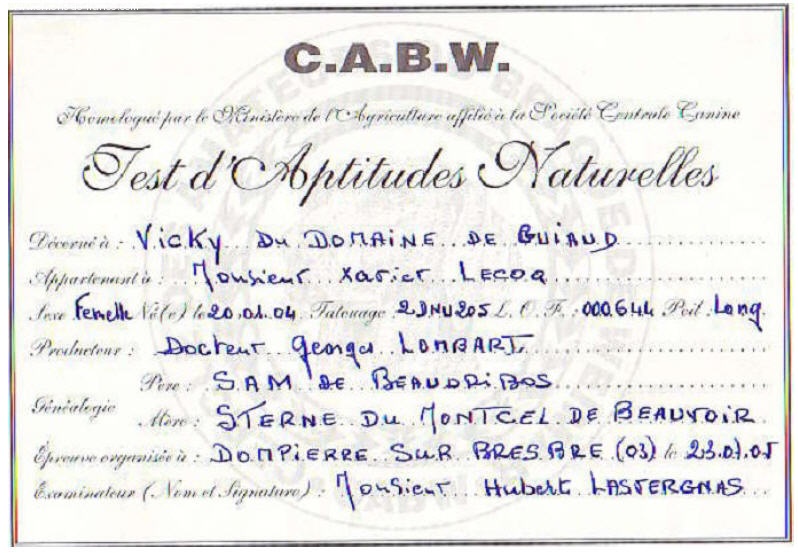 C.A.B.W.
Homologué par le Ministère de l'Agriculture affilié à la Société Centrale Canine
Test d'Aptitudes Naturelles
Décerné à : Vicky DU DOMAINE DE GUIAUD
Appartenant à : Monsieur Xavier LECOQ
Sexe Femelle Né(e) le 20.01.04 Tatouage 2JNU205 L. O. F. : 000.644 Poil : Long
Producteur : Docteur Georges LOMBART
Père : SAM DE BEAUDRIBOS
Généalogie
Mère : STERNE DU MONTCEL DE BEAUVOIR
Épreuve organisée à : DOMPIERRE SUR BRESBRE (03) le
Examinateur (Nom et Signature) : Monsieur Hubert LASTERGNAS